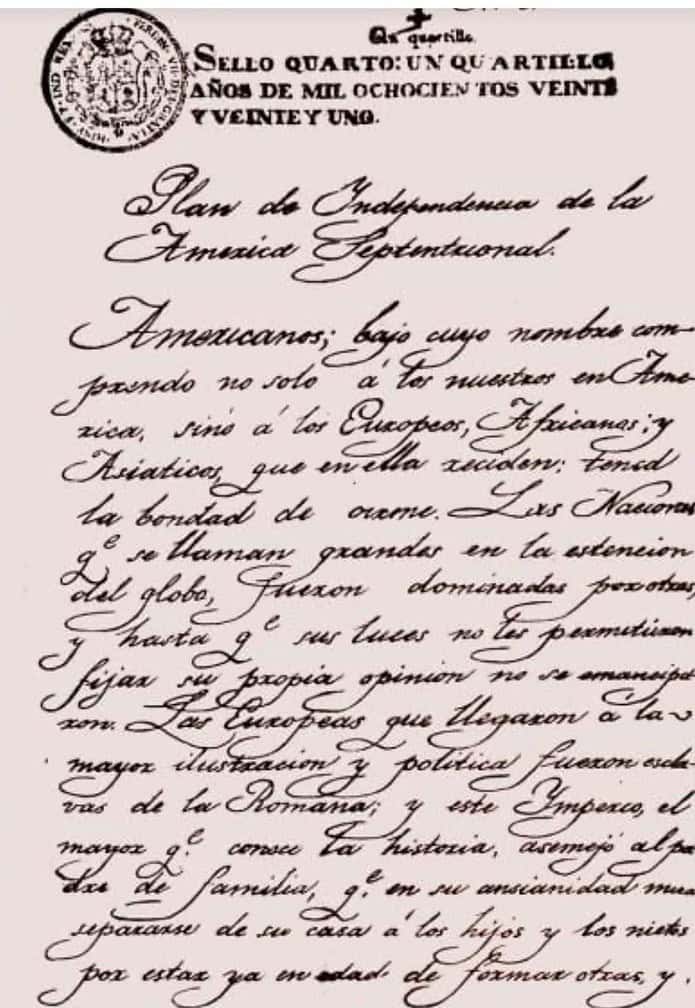 Un quartillo.
SELLO QUARTO: UN QUARTILLO
AÑOS DE MIL OCHOCIENTOS VEINTE
Y VEINTE Y UNO.
Plan de Independencia de la
America Septentrional.
Americanos; bajo cuyo nombre com-
prendo no solo á los nuestros en Ame-
rica, sino á los Europeos, Africanos; y
Asiaticos, que en ella reciden: tened
la bondad de oirme. Las Naciones
q.e se llaman grandes en la estencion
del globo, fueron dominadas por otras,
y hasta q.e sus luces no les permitieron
fijar su propia opinion no se emancipa
ron. Las Europeas que llegaron á la
mayor ilustracion y politica fueron escla-
vas de la Romana; y este Imperio, el
mayor q.e conoce la historia, asemejó al pa
dre de familia, q.e en su ansianidad mira
separarse de su casa á los hijos y los nietos
por estar ya en edad de formar otras, y